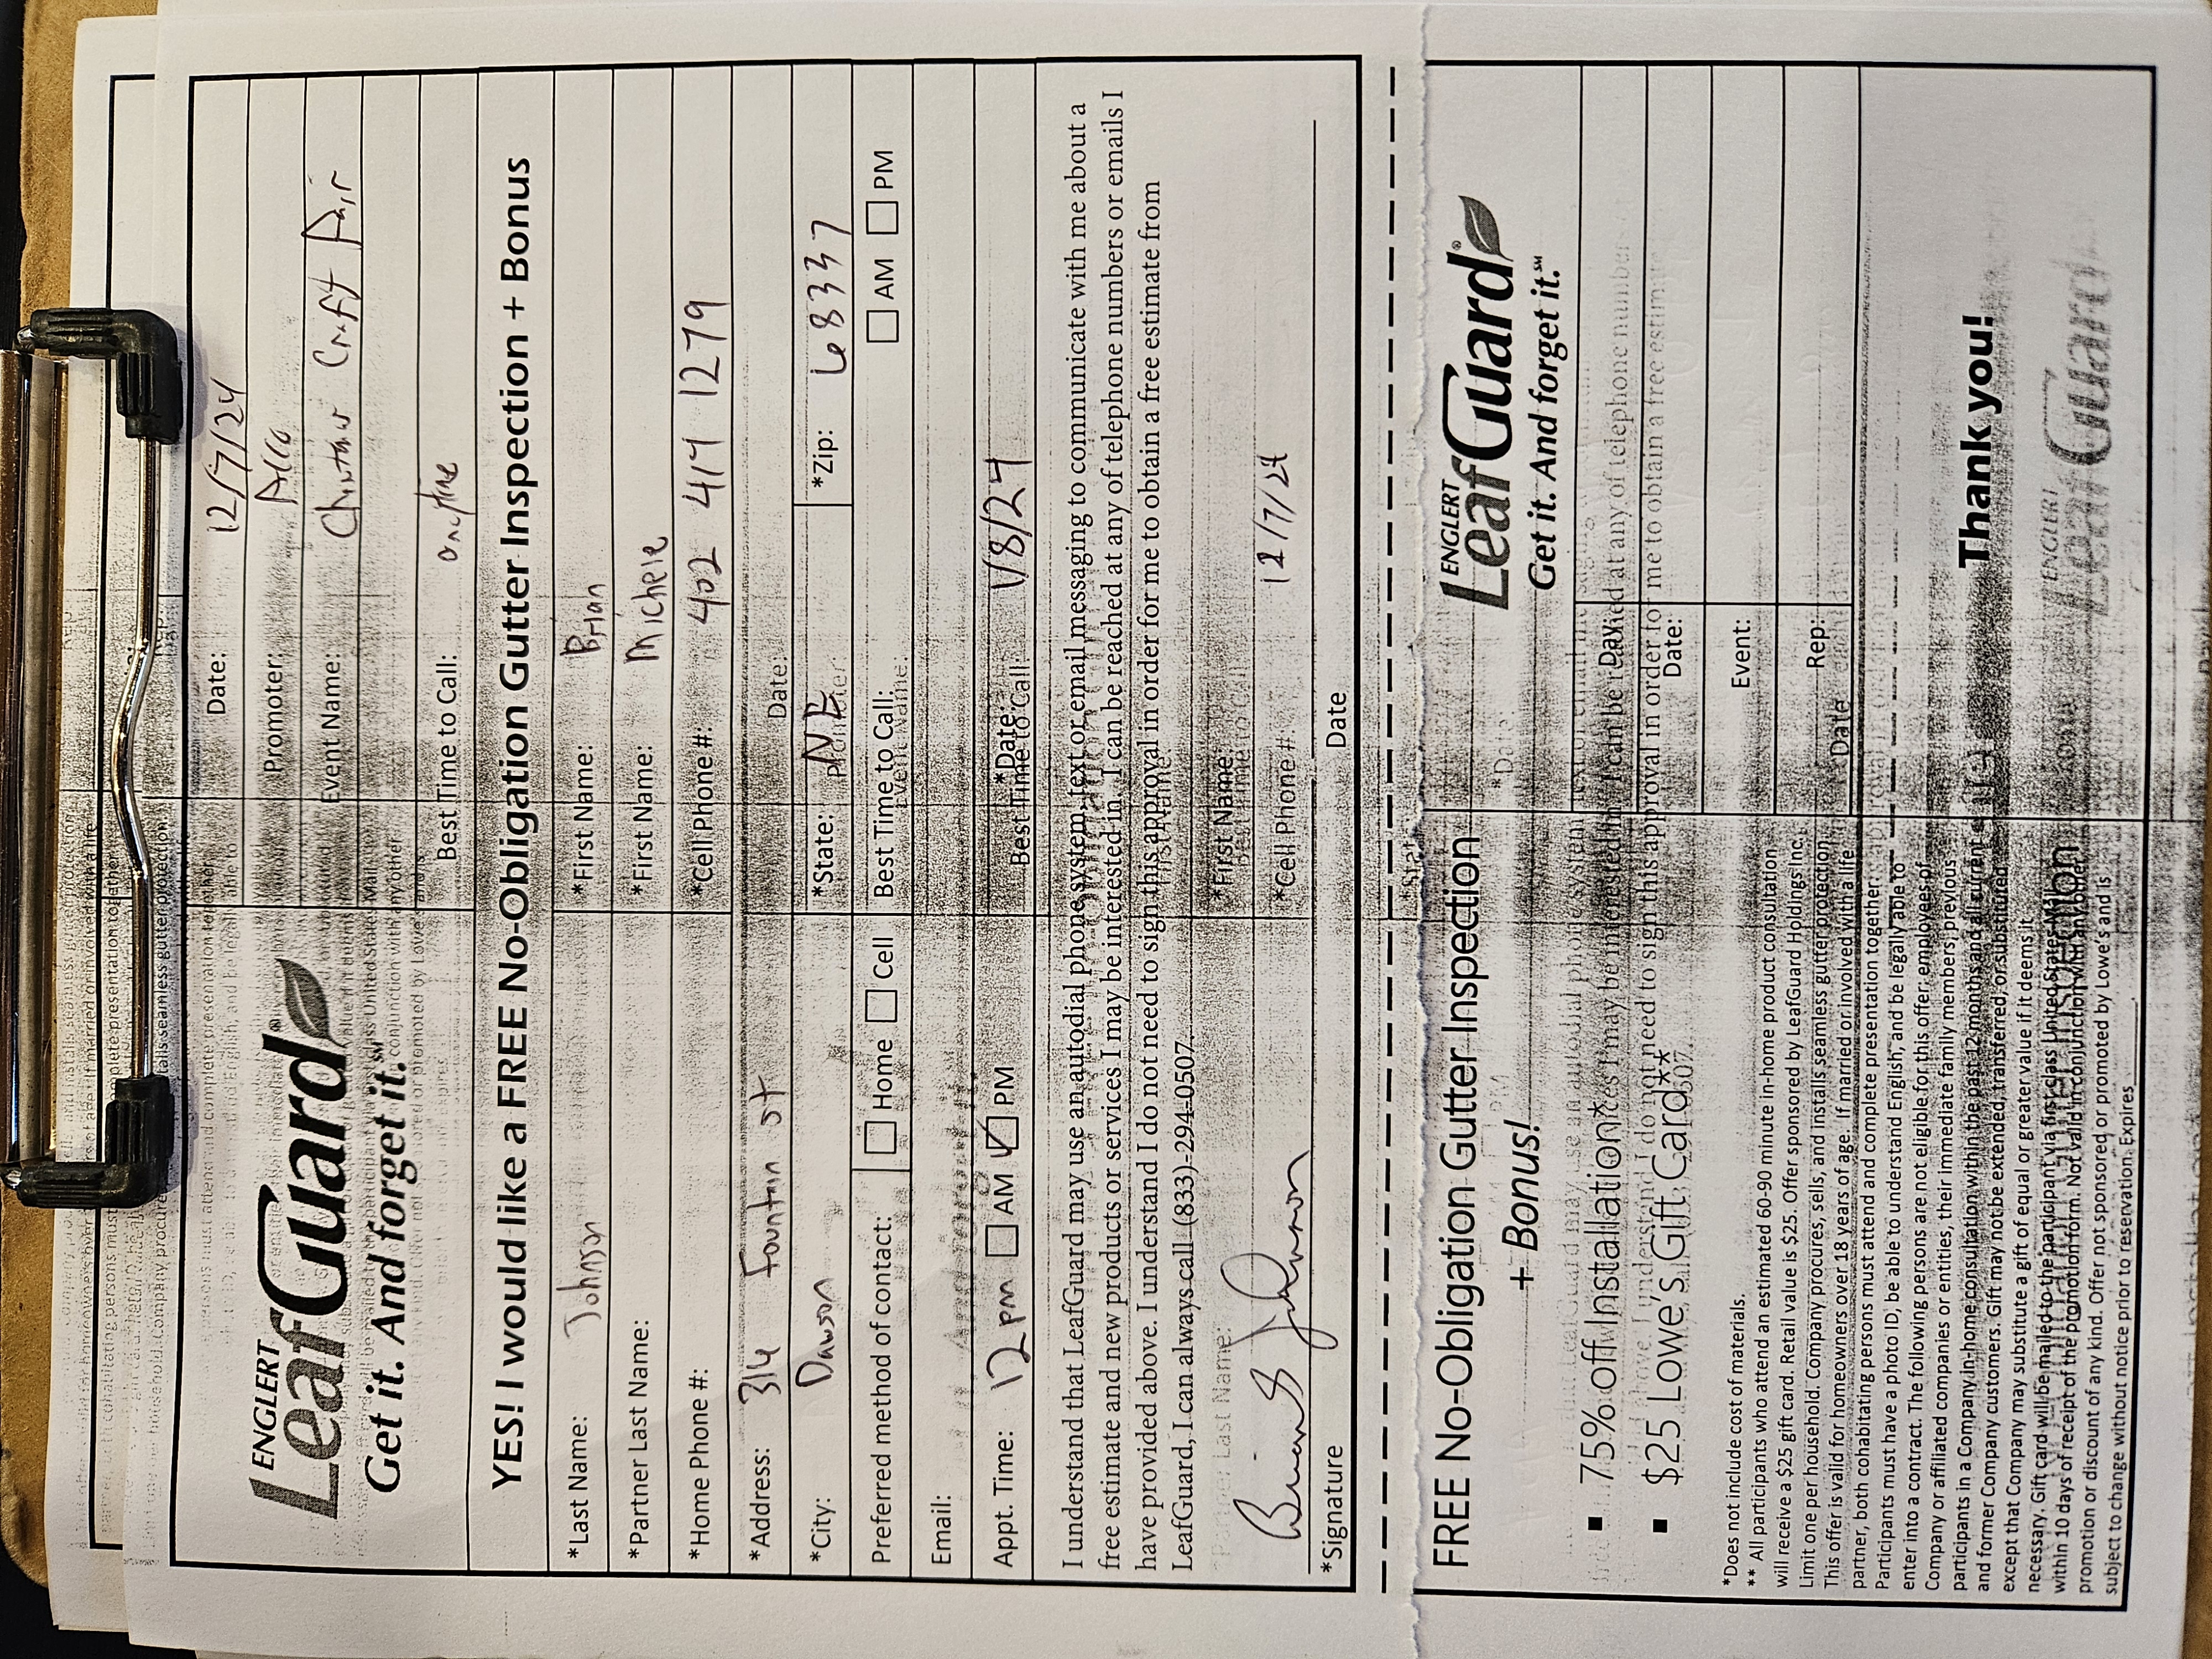 ENGLERT
LeafGuard®
Get it. And forget it.℠
Date: 12/7/24
Promoter:
Event Name: Craft Fair
Best Time to Call: anytime
YES! I would like a FREE No-Obligation Gutter Inspection + Bonus
*Last Name: Johnson *First Name: Brian
*Partner Last Name: *First Name: Michele
*Home Phone #: *Cell Phone #: 402 414 1279
*Address: 314 Fountain St
Date:
*City: Dawson *State: NE *Zip: 68337
Promoter:
Preferred method of contact: Home Cell Best Time to Call: AM PM
Event Name:
Email:
And forget it.
Appt. Time: 12 pm AM PM *Date: 1/8/24
Best Time to Call:
I understand that LeafGuard may use an autodial phone system, text or email messaging to communicate with me about a
free estimate and new products or services I may be interested in. I can be reached at any of telephone numbers or emails I
have provided above. I understand I do not need to sign this approval in order for me to obtain a free estimate from
LeafGuard, I can always call (833)-294-0507.
*Partner Last Name: *First Name:
Best Time to Call:
Brian S Johnson *Cell Phone #: 12/7/24
*Signature Date
FREE No-Obligation Gutter Inspection
+ Bonus!
▪ 75% off Installation*
▪ $25 Lowe's Gift Card**
*Does not include cost of materials.
** All participants who attend an estimated 60-90 minute in-home product consultation
will receive a $25 gift card. Retail value is $25. Offer sponsored by LeafGuard Holdings Inc.
Limit one per household. Company procures, sells, and installs seamless gutter protection.
This offer is valid for homeowners over 18 years of age. If married or involved with a life
partner, both cohabitating persons must attend and complete presentation together.
Participants must have a photo ID, be able to understand English, and be legally able to
enter into a contract. The following persons are not eligible for this offer: employees of
Company or affiliated companies or entities, their immediate family members, previous
participants in a Company in-home consultation within the past 12 months and all current
and former Company customers. Gift may not be extended, transferred, or substituted
except that Company may substitute a gift of equal or greater value if it deems it
necessary. Gift card will be mailed to the participant via first class United States Mail
within 10 days of receipt of the promotion form. Not valid in conjunction with any other
promotion or discount of any kind. Offer not sponsored or promoted by Lowe's and is
subject to change without notice prior to reservation. Expires________.
ENGLERT
LeafGuard®
Get it. And forget it.℠
*Date:
Day:
Date:
Event:
Rep:
Date
Thank you!
ENGLERT
LeafGuard